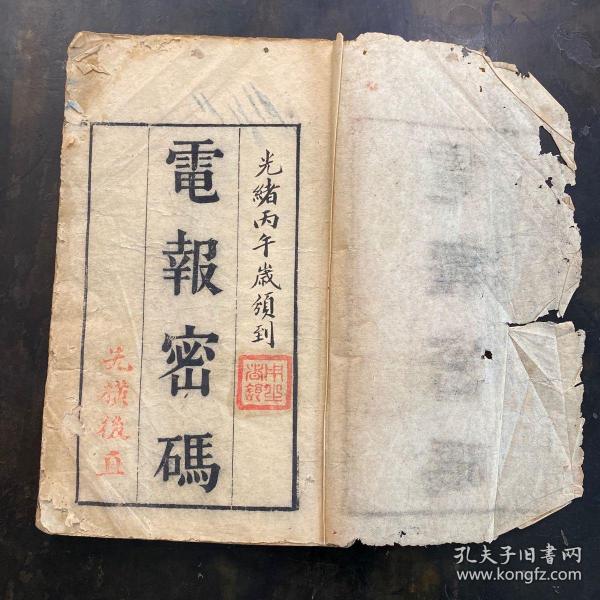 光緒丙午歲領到
電報密碼
先橫後直
孔夫子旧書网
www.kongfz.com